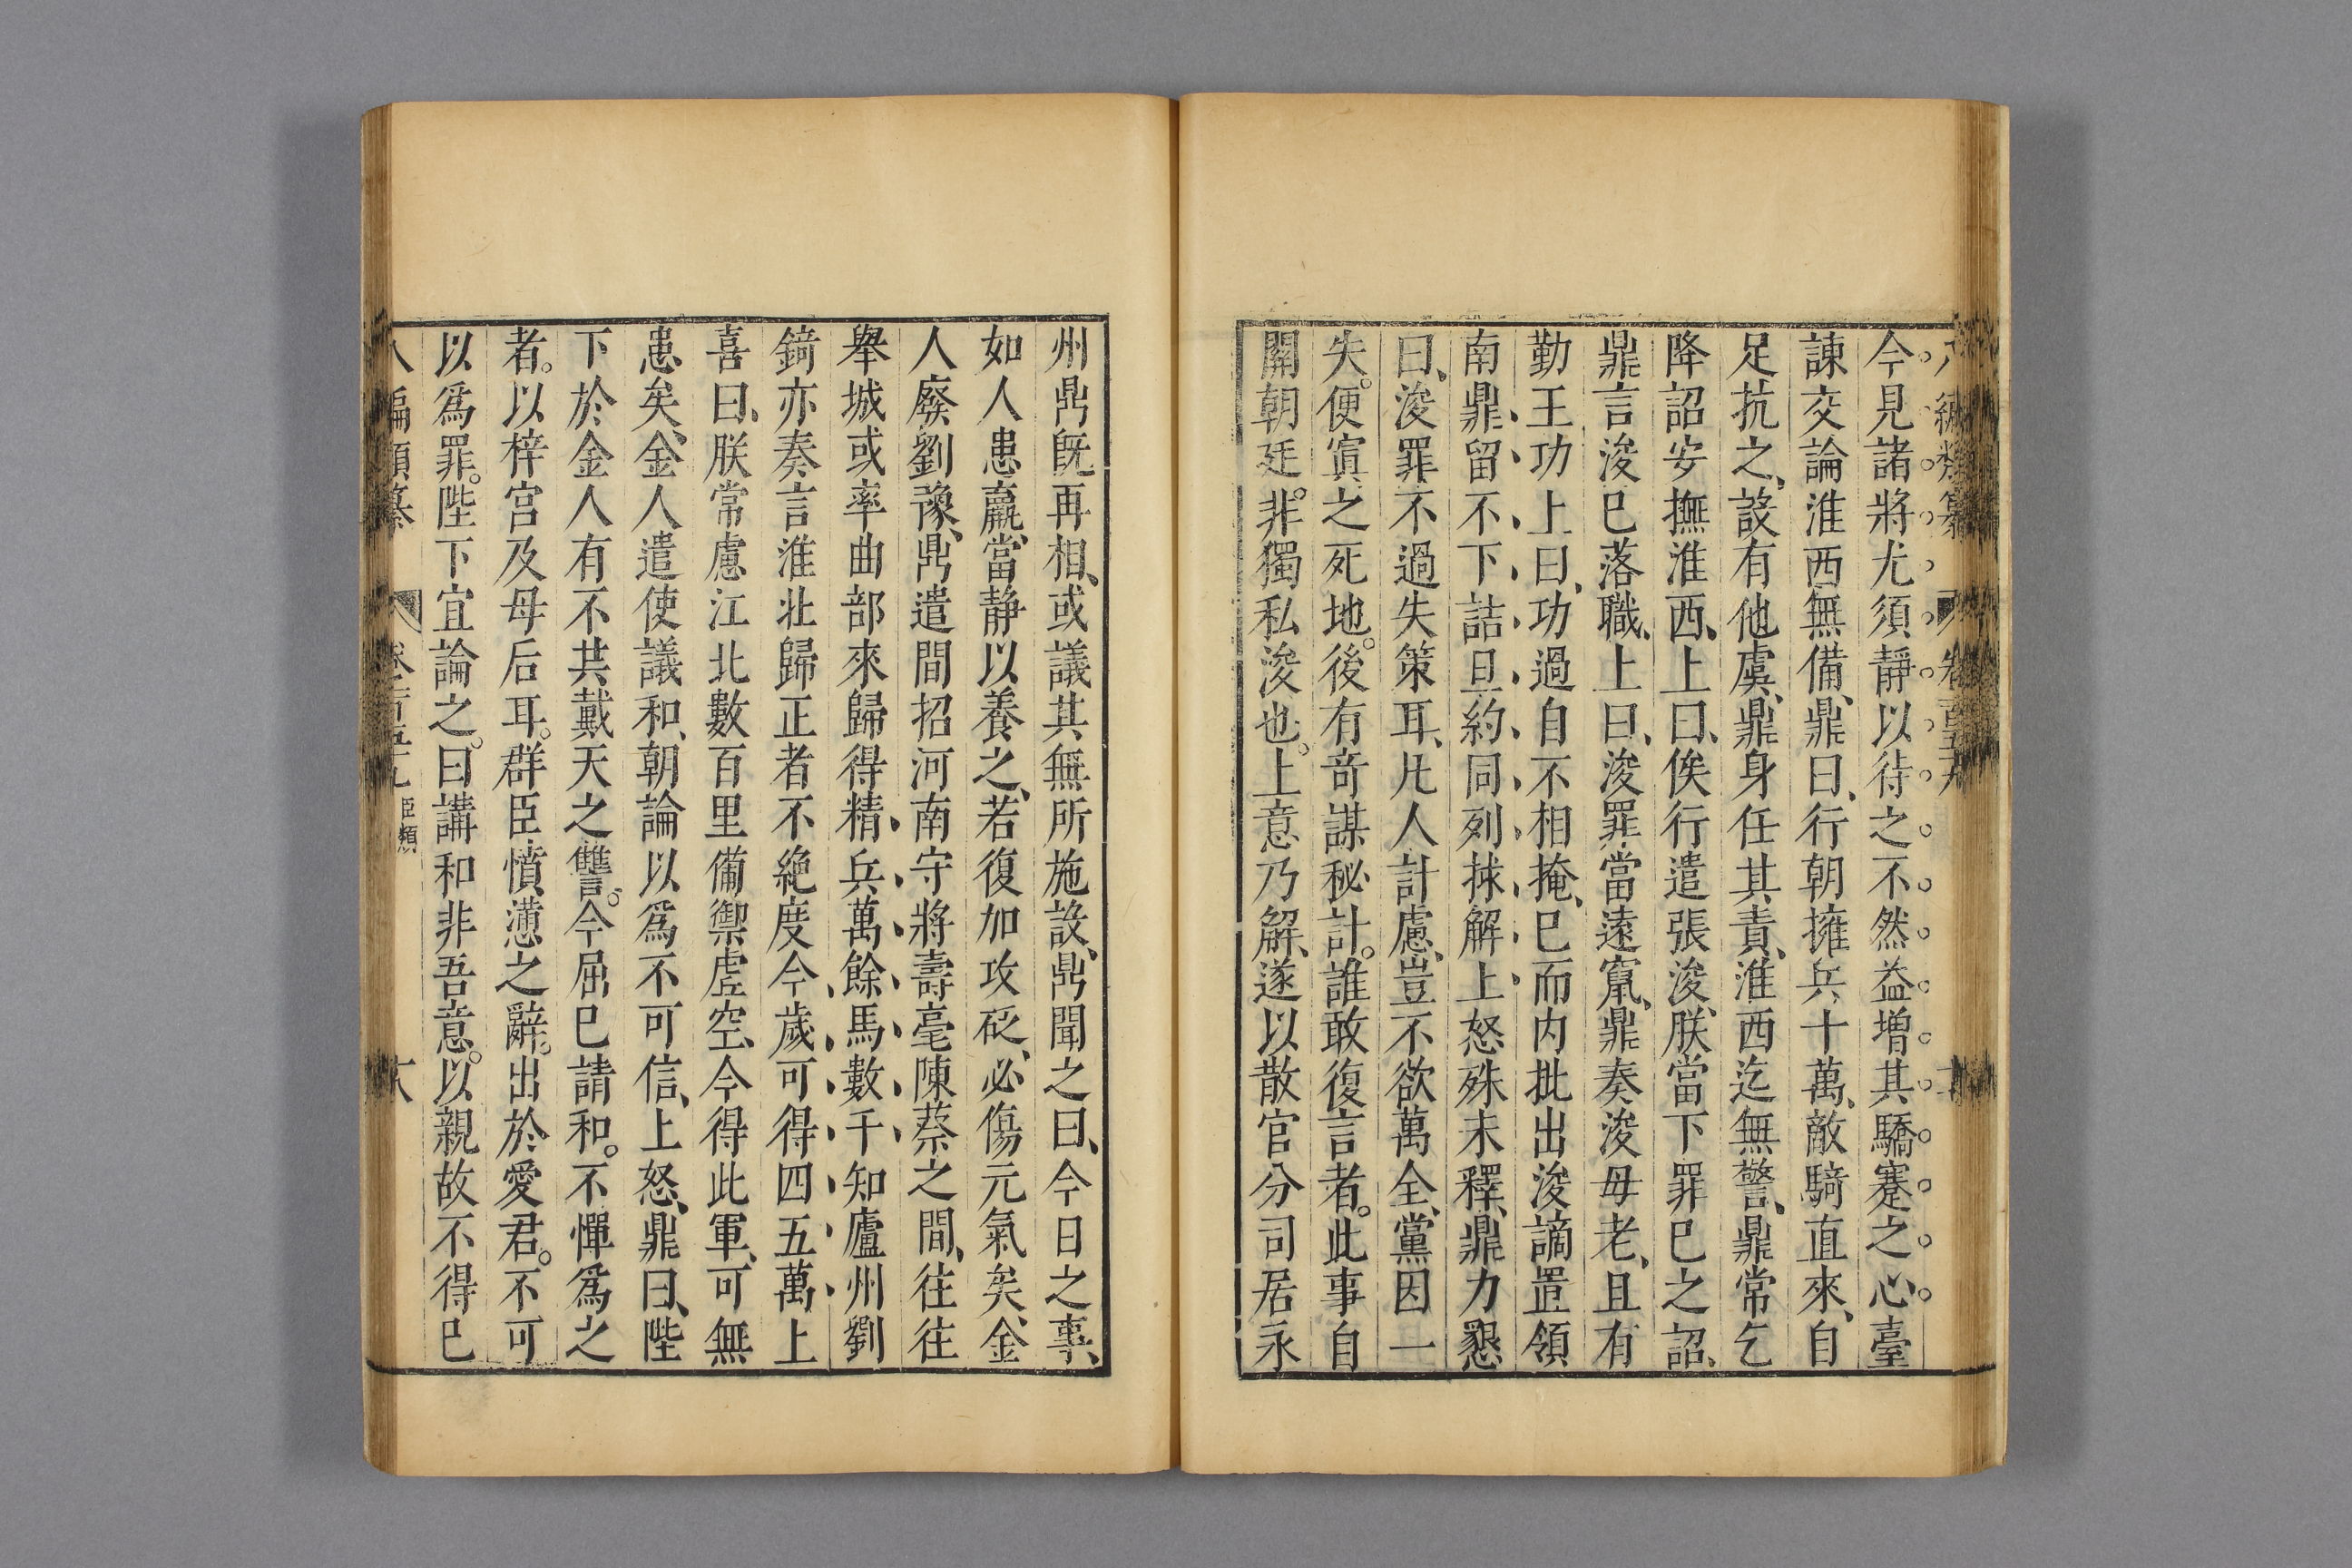 今見諸將尤須靜以待之不然益增其驕蹇之心臺
諫交論淮西無備鼎曰行朝擁兵十萬敵騎直來自
足抗之設有他虞鼎身任其責淮西迄無警鼎常乞
降詔安撫淮西上曰俟行遣張浚朕當下罪已之詔
鼎言浚已落職上曰浚罪當遠竄鼎奏浚母老且有
勤王功上曰功過自不相掩已而内批出浚謫置領
南鼎留不下詰旦約同列捄解上怒殊未釋鼎力懇
曰浚罪不過失策耳凡人計慮豈不欲萬全黨因一
失便寘之死地後有竒謀秘計誰敢復言者此事自
關朝廷非獨私浚也上意乃解遂以散官分司居永
州鼎既再相或議其無所施設鼎聞之曰今日之事
如人患羸當静以養之若復加攻砭必傷元氣矣金
人廢劉豫鼎遣間招河南守將壽亳陳蔡之間往往
舉城或率曲部來歸得精兵萬餘馬數千知廬州劉
錡亦奏言淮北歸正者不絶度今歲可得四五萬上
喜曰朕常慮江北數百里備禦虛空今得此軍可無
患矣金人遣使議和朝論以爲不可信上怒鼎曰陛
下於金人有不共戴天之讐今屈已請和不憚爲之
者以梓宫及母后耳群臣憤懣之辭出於愛君不可
以爲罪陛下宜論之曰講和非吾意以親故不得已